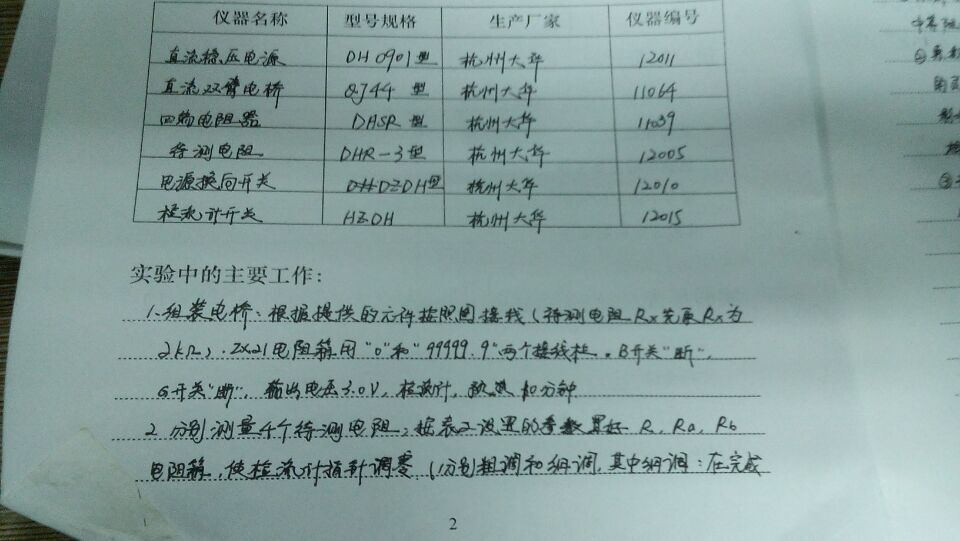 仪器名称 型号规格 生产厂家 仪器编号
直流稳压电源 DH0901型 杭州大华 12011
直流双臂电桥 QJ44型 杭州大华 11064
四端电阻器 DHSR型 杭州大华 11039
待测电阻 DHR-3型 杭州大华 12005
电源换向开关 型 杭州大华 12010
检流计开关 HZDH 杭州大华 12015
实验中的主要工作:
1.组装电桥:根据提供的元件按照图接线(待测电阻Rx先取Rx为
2kΩ).ZX21电阻箱用"0"和"99999.9"两个接线柱。B开关"断".
G开关"断",输出电压3.0V,检流计,预热10分钟
2.分别测量4个待测电阻:按表2设置的参数置好R,Ra,Rb
电阻箱,使检流计指针调零(分别粗调和细调,其中细调:在完成
2